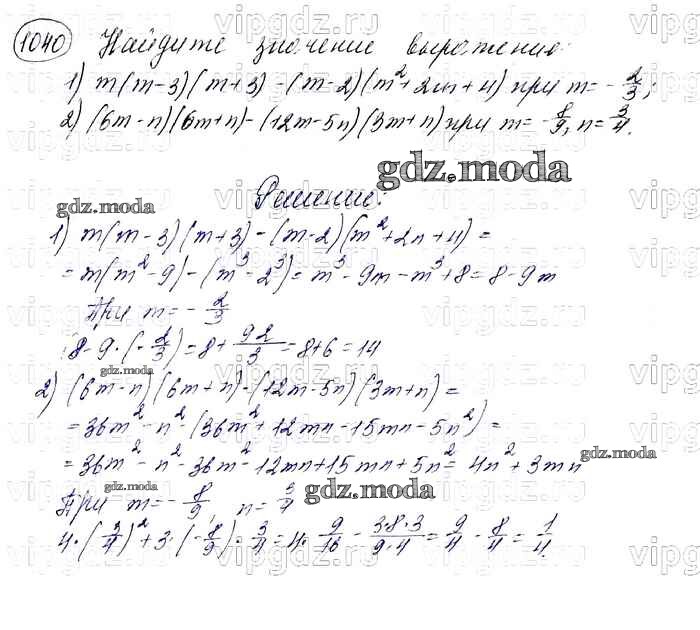 1040 Найдите значение выражения:
1) m(m-3)(m+3)-(m-2)(m²+2m+4) при m=-2/3;
2) (6m-n)(6m+n)-(12m-5n)(3m+n) при m=-8/9, n=3/4.
gdz.moda
Решение:
gdz.moda
1) m(m-3)(m+3)-(m-2)(m²+2m+4)=
=m(m²-9)-(m³-2³)=m³-9m-m³+8=8-9m
При m=-2/3
8-9·(-2/3)=8+9·2/3=8+6=14
gdz.moda
2) (6m-n)(6m+n)-(12m-5n)(3m+n)=
=36m²-n²-(36m²+12mn-15mn-5n²)=
gdz.moda
=36m²-n²-36m²-12mn+15mn+5n²=4n²+3mn
При m=-8/9, n=3/4
gdz.moda
4·(3/4)²+3·(-8/9)·3/4=4·9/16-3·8·3/9·4=9/4-8/4=1/4.
vipgdz.ru